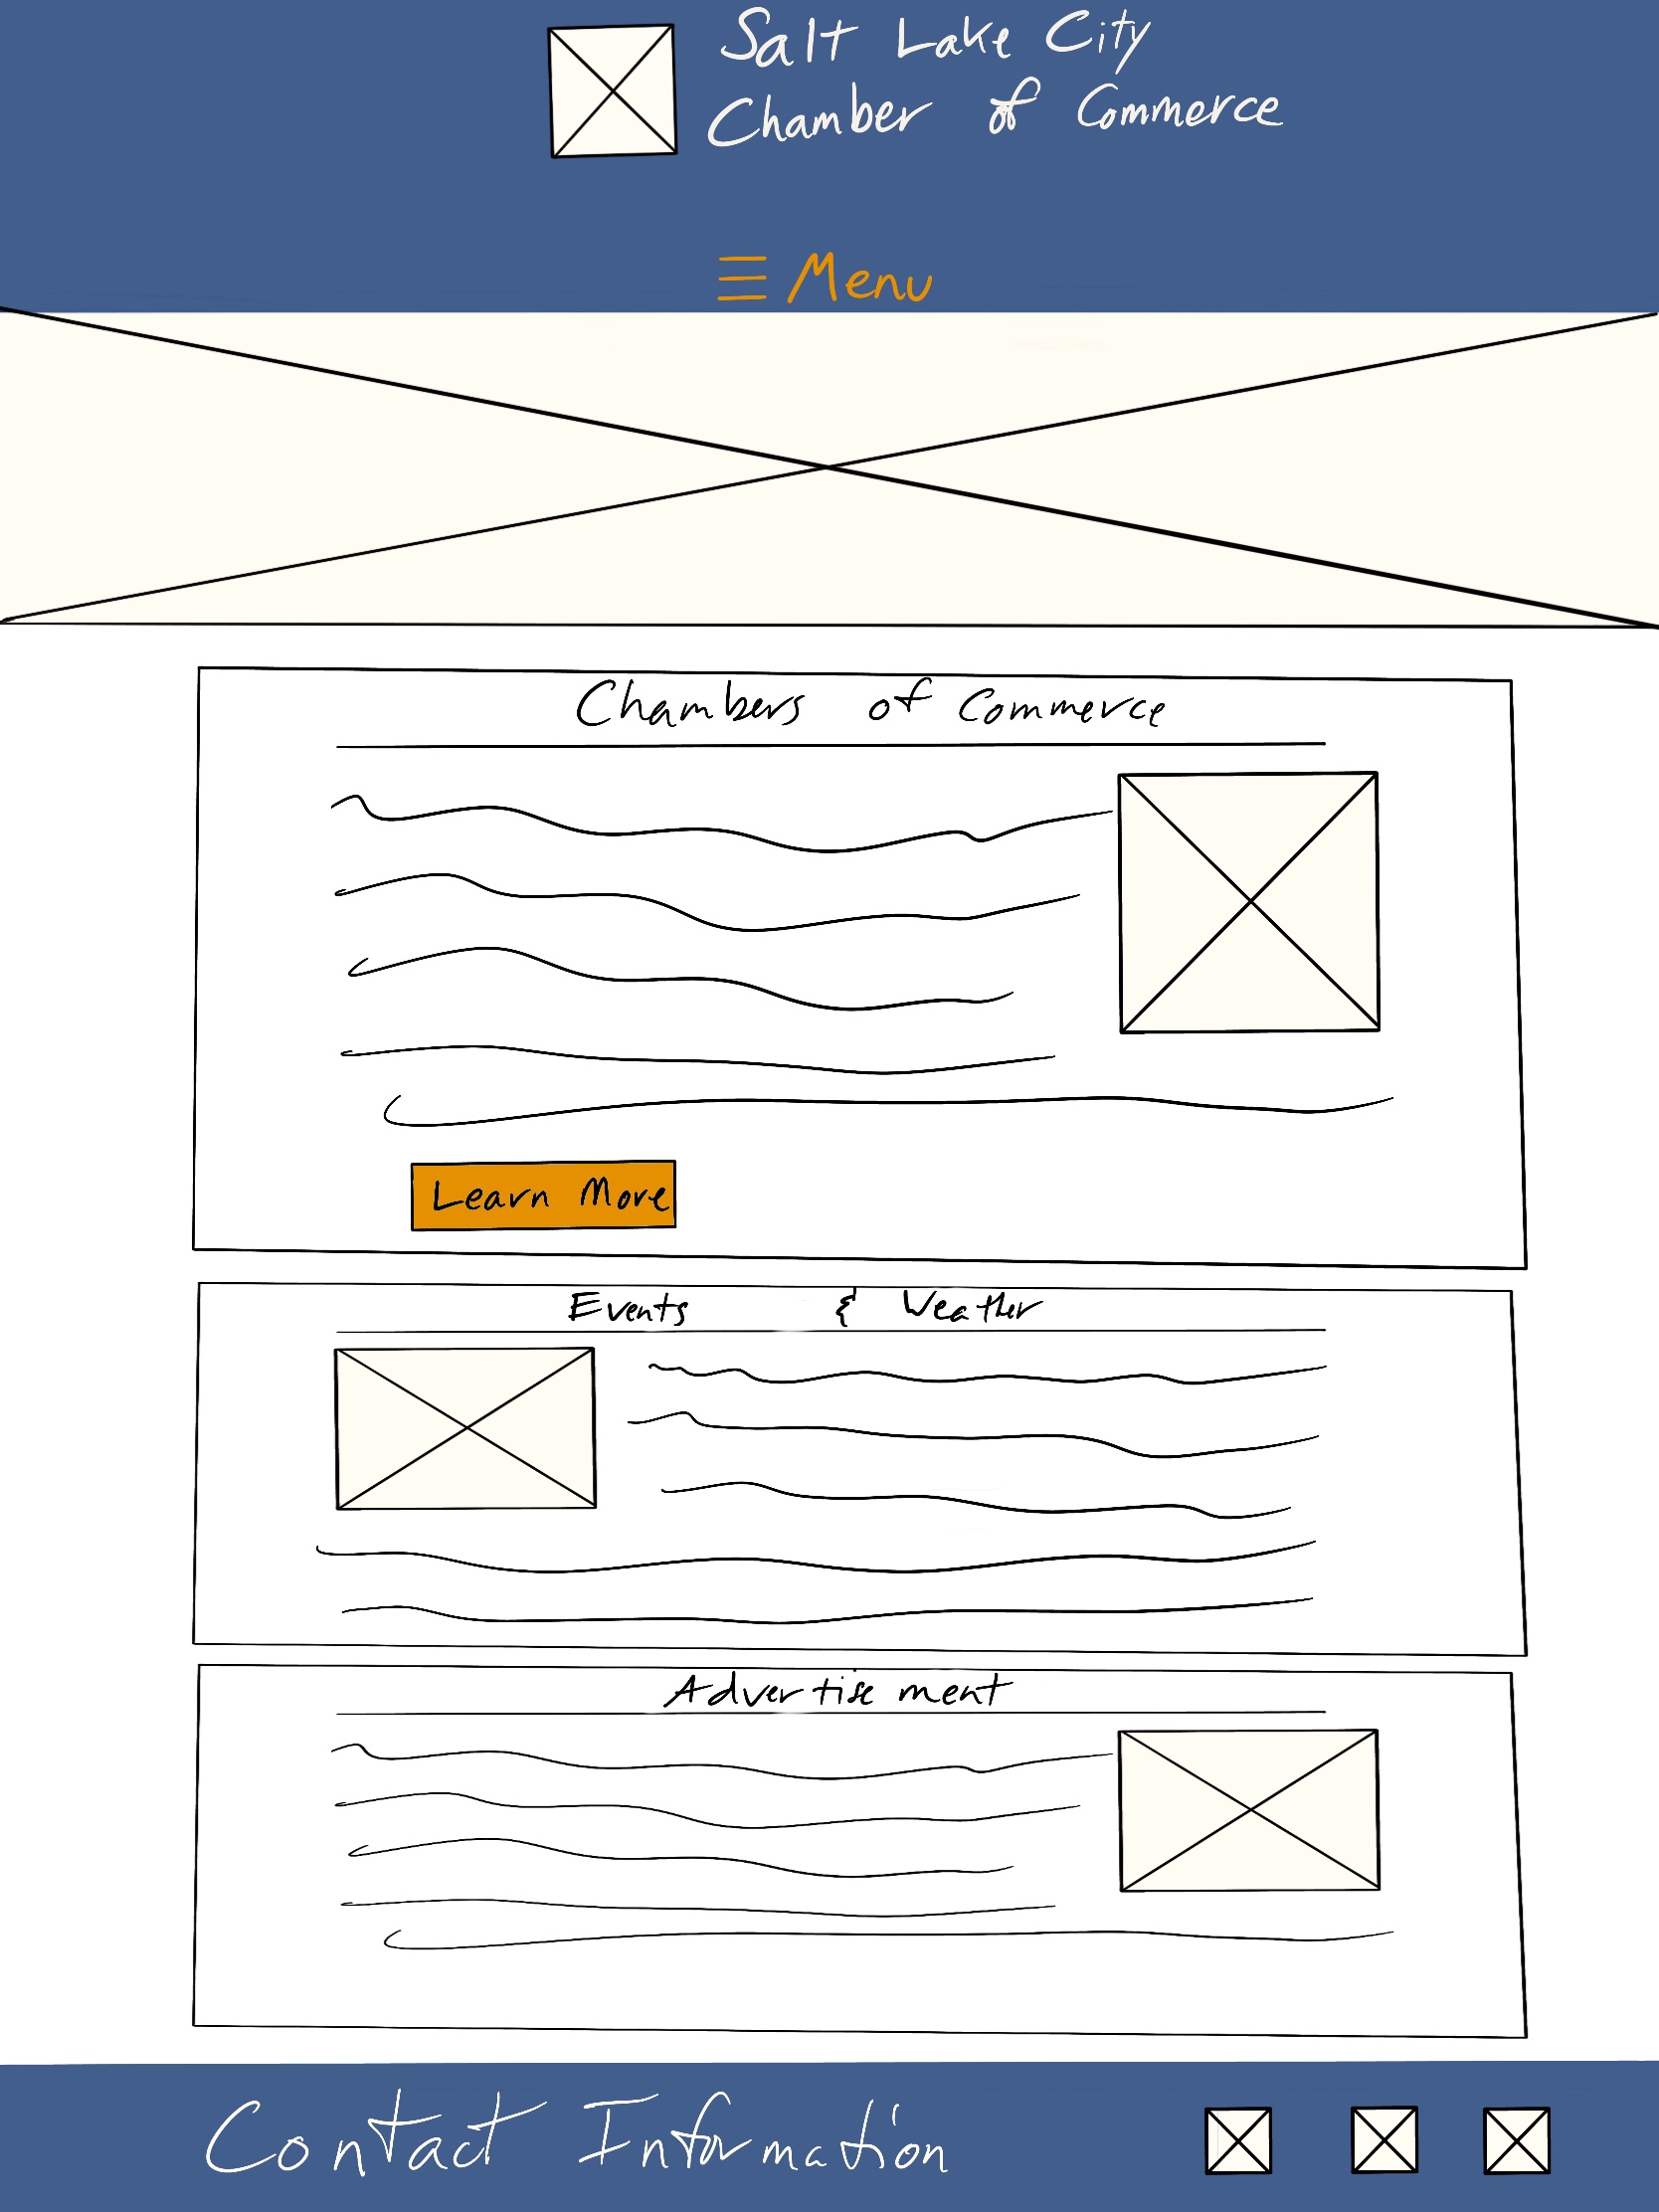 Salt Lake City
Chamber of Commerce
Menu
Chambers of Commerce
Learn More
Events & Weather
Advertisement
Contact Information